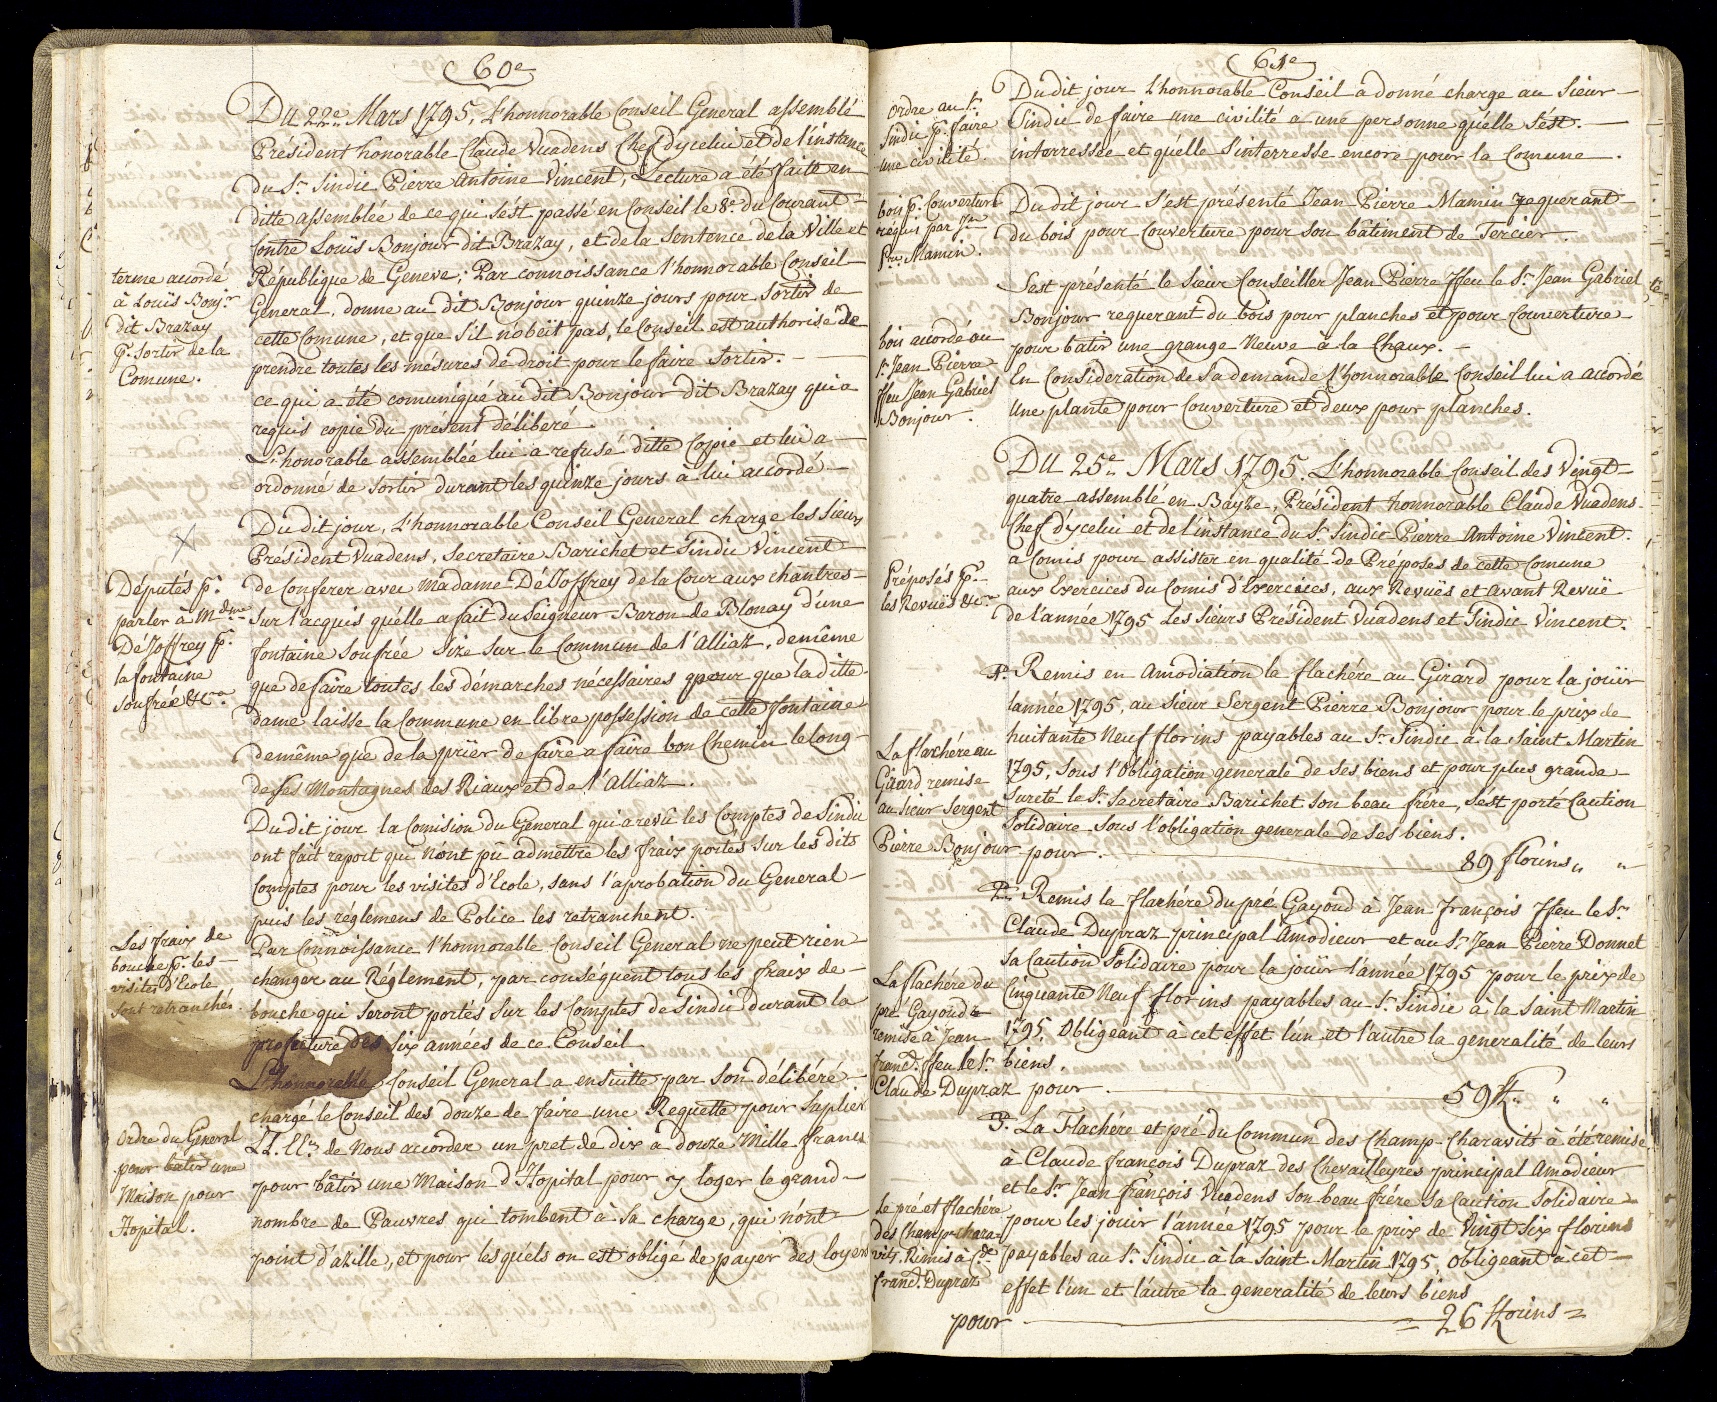 60e
Du 22e Mars 1795, L'honnorable Conseil General assemblé
Président honorable Claude Vuadens Chef d'ycelui et de l'instance
du Sr Sindic Pierre Antoine Vincent, Lecture a été faite en
ditte assemblée de ce qui s'ést passé en Conseil le 8e du Courant
Contre Louis Bonjour dit Brazay, et de la Sentence de la Ville et
terme accordé
à Louis Bonjr
dit Brazay
pr Sortir de la
Comune.
République de Geneve; Par connoissance l'honnorable Conseil
General, donne au dit Bonjour quinze jours pour Sortir de
cette Comune, et que s'il n'obéit pas, le Conseil est authorisé de
prendre toutes les mésures de droit pour le faire Sortir.
ce qui a été comuniqué au dit Bonjour dit Brazay qui a
requis copie du présent délibéré
L'honorable assemblée lui a refusé ditte Copie et lui a
ordonné de Sortir durant les quinze jours à lui accordé
Du dit jour, L'honnorable Conseil General charge les Sieurs
Président Vuadens, Secretaire Barichet et Sindic Vincent
Députés pr
parler à Mdme
DéJoffrey pr
la fontaine
Soufrée &cra
de Conferer avec Madame DéJoffrey de la Cour aux chantres
Sur l'acquis qu'élle a fait du Seigneur Baron de Blonay d'une
fontaine Soufrée Size Sur le Commun de l'Alliaz, de même
que de faire toutes les démarches nécessaires pour que la ditte
dame laisse la Commune en libre possession de cette fontaine
demême que de la prïer de faire a faire bon Chemin le long
de Ses Montagnes des Riaux et de l'Alliaz.
Du dit jour la Comision du General qui a revû les Comptes de Sindic
ont fait raport qui n'ont pû admettre les fraix portés sur les dits
Comptes pour les visites d'Ecole, sans l'aprobation du General
puis les réglemens de Police les retranchent.
Les fraix de
bouche pr les
visites d'Ecole
sont retranchés
Par Connoissance l'honnorable Conseil General ne peut rien
changer au Réglement, par conséquent tous les fraix de
bouche qui Seront portés Sur les Comptes de Sindic durant la
préfecture des Six années de ce Conseil
L'honnorable Conseil General a ensuitte par Son délibéré
chargé le Conseil des douze de faire une Requette pour Suplier
Ordre du General
pour batir une
Maison pour
Hopital.
LL. EEces de Nous accorder un pret de dix à douze Mille francs
pour bâtir une Maison d'Hopital pour y loger le grand
nombre de Pauvres qui tombent à Sa charge, qui n'ont
point d'azille, et pour les quéls on est obligé de payer des loyers
61e
Ordre au Sr
Sindic pr faire
une civilité.
Du dit jour L'honnorable Conseil a donné charge au Sieur
Sindic de faire une civilité a une personne qu'elle s'ést
interressée et qu'élle S'interresse encore pour la Comune.
bois pr Couverture
requi par Jn
Pre Mamin.
Du dit jour S'est présenté Jean Pierre Mamin requerant
du bois pour Couverture pour son bâtiment de Tercier.
S'est présenté le Sieur Conseiller Jean Pierre Ffeu le Sr Jean Gabriel
Bonjour requerant du bois pour planches et pour Couverture
bois accordé au
Sr Jean Pierre
Ffeu Jean Gabriel
Bonjour.
pour batir une grange Neuve à la Chaux.
En Consideration de Sa demande l'honnorable Conseil lui a accordé
Une plante pour Couverture et deux pour planches.
Du 25e Mars 1795. L'honnorable Conseil des Vingt
quatre assemblé en Bayze, Président honnorable Claude Vuadens
Chef d'ycelui et de l'instance du Sr Sindic Pierre Antoine Vincent.
Préposés pr
les Revuës &cra
à Comis pour assister en qualité de Préposés de cette Comune
aux Exercices du Comis d'Exercices, aux Revuës et avant Revuë
de l'année 1795 Les Sieurs Président Vuadens et Sindic Vincent.
1o Remis en Amodiation la flachére au Girard pour la joüir
l'année 1795, au Sieur Sergent Pierre Bonjour pour le prix de
La flachére au
Girard remise
au Sieur Sergent
Pierre Bonjour
huitante Neuf florins payables au Sr Sindic à la Saint Martin
1795, Sous l'obligation generale de Ses biens et pour plus grande
Sureté le Sr Secretaire Barichet Son beau frére, s'ést porté Caution
Solidaire Sous l'obligation generale de Ses biens.
pour. 89 florins „ „
2o Remis la flachére du pré Gayoud à Jean François Ffeu le Sr
Claude Dupraz principal Amodieur et au Sr Jean Pierre Donnet
La flachére du
pré Gayoud
remise à Jean
frans. ffeu le Sr
Claude Dupraz
Sa Caution Solidaire pour la joüir l'année 1795 pour le prix de
Cinquante Neuf florins payables au Sr Sindic à la Saint Martin
1795. Obligeant à cet effet l'un et l'autre la generalité de leurs
biens.
pour 59 ff „ „ „
3o La Flachére et pré du Commun des Champ-Charavits à été remise
à Claude françois Dupraz des Chevalleyres principal Amodieur
et le Sr Jean françois Vuadens Son beau frére Sa Caution Solidaire
Le pré et flachére
des Champ-chara-
vits. Remis à Cde
frans. Dupraz
pour les joüir l'année 1795 pour le prix de Vingt Six florins
payables au Sr Sindic à la Saint Martin 1795, Obligeant à cet
effet l'un et l'autre la generalité de leurs biens
pour 26 florins